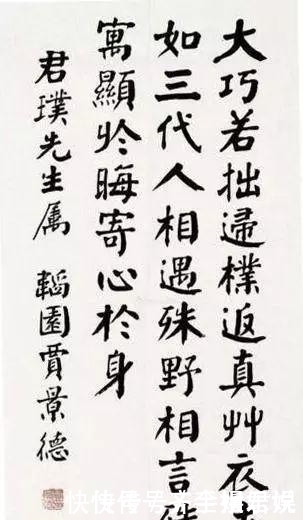 大巧若拙歸樸返真艸衣
如三代人相遇殊野相言
寓顯扵晦寄心於身
君璞先生属 韜園賈景德